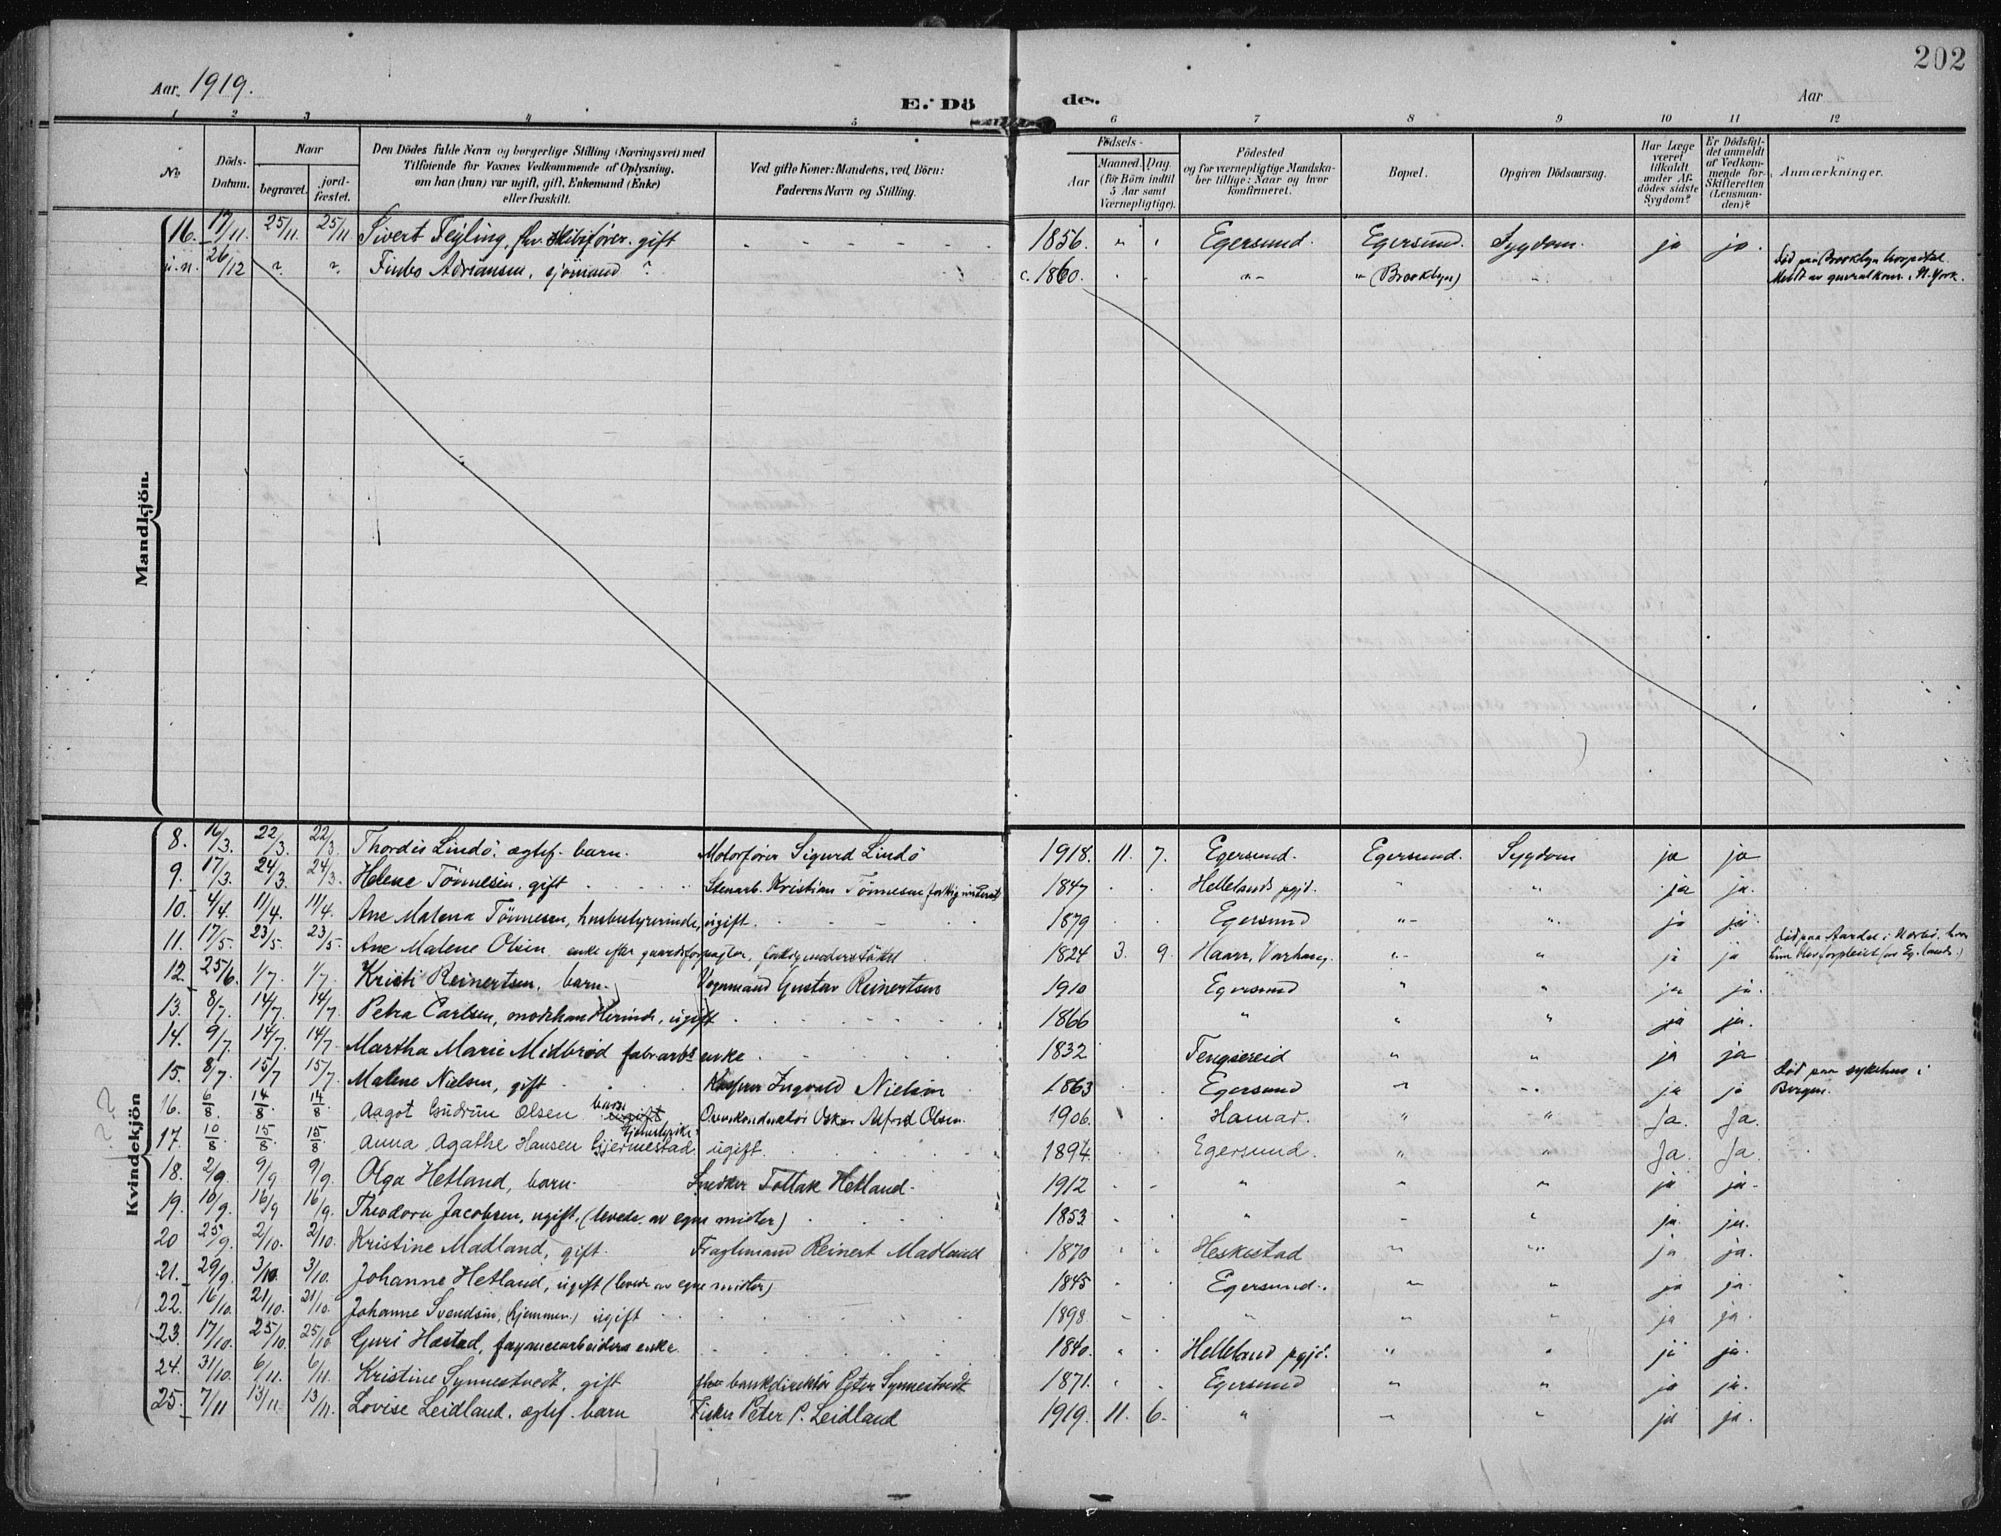 202
Aar 1919.
E. Döde.
Aar
1 2 3 4 5 6 7 8 9 10 11 12
No
Döds-Datum.
Naar
begravet.
jord-fæstet.
Den Dödes fulde Navn og borgerlige Stilling (Næringsvei) med
Tilföiende for Voxnes Vedkommende af Oplysning,
om han (hun) var ugift, gift, Enkemand (Enke)
eller fraskilt.
Ved gifte Koner: Mandens, ved Börn:
Faderens Navn og Stilling.
Födsels-
Aar
Maaned. Dag.
(for Börn indtil
5 Aar samt
Værnepligtige).
Födested
og for værnepligtige Mandska-
ber tillige: Naar og hvor
konfirmeret.
Bopæl.
Opgiven Dödsaarsag.
Har Læge
været
tilkaldt
under Af-
dödes sidste
Sygdom?
Er Dödsfal-
det anmeldt
af Vedkom-
mende for
Skifteretten
(Lensman-
den)?
Anmærkninger.
Mandkjön.
16. 17/11. 25/11. 25/11 Sivert Fejling, fhv. skibsfører. gift - - - - - - 1856 " " Egersund. Egersund. Sygdom. ja ja.
u.n. 26/12 ? ? Adriansen, sjömand ? c. 1860. - - "- "(Brooklyn) - Död paa Brooklyn hospital.
Meldt av generalkons. i N. York.
Kvindekjön
8. 16/3. 22/3. 22/3. Thordis Lindö, ægtef. barn. Motorfører Sigurd Lindö 1918. 11. 7. Egersund. Egersund. Sygdom ja ja
9. 17/3. 24/3. 24/3. Helene Tönnesen, gift Stenarb. Kristian Tönnesen 1847 Hellelands pgjd. " " ja ja.
10. 4/4. 11/4. 11/4. Ane Malena Tönnesen, husbestyrerinde, ugift. 1879 Egersund "- " ja ja.
11. 17/5. 23/5. 23/5. Ane Malene Olsen enke efter gaardsforpagter, fattigunderstöttet 1824 3. 9. Haarr, Varhaug "- " ja ja död paa i
12. 25/6. 1/7. 1/7. Kristi Reinertsen, barn. Vognmand Gustav Reinertsen 1910 Egersund " " ja ja.
13. 8/7. 14/7. 14/7. Petra Carlsen, modehandlerinde, ugift 1866 " " " ja ja.
14. 9/7. 14/7. 14/7. Martha Marie Midbröd fabrarbs enke 1832 Tengsereid " " ja ja
15. 8/7. 15/7 15/7. Malene Nielsen, gift Ingvald Nielsen 1863 Egersund " " ja ja död paa sykehus i
Bergen.
16. 6/8. 14/8. 14/8 Aagot Gudrun Olsen barn ugift Oskar Alfred Olsen. 1906. Hamar. " " Ja. Ja.
17. 10/8 15/8. 15/8 Anna Agathe Hansen Gjermestad ugift 1894. Egersund. " " Ja. Ja.
18. 2/9. 9/9 9/9. Olga Hetland, barn. Snekker Tollak Hetland. 1912 " " " ja ja.
19. 10/9. 16/9 16/9. Theodora Jacobsen, ugift. (levede av egne midler) 1853 " - " ja. ja.
20 25/9. 2/10. 2/10. Kristine Madland, gift. Fragtemand Reinert Madland 1870 Heskestad " " ja ja.
21. 29/9. 3/10. 3/10. Johanne Hetland, ugift (levede av egne midler) 1845 Egersund. " " ja ja.
22. 16/10. 21/10. 21/10. Johanne Svendsen, (hjemmev.) ugift 1898 " " " ja ja.
23. 17/10. 25/10. 25/10 Guri Hæstad, fayancearbeiders enke 1840. Helleland pgjd. " " ja ja.
24. 31/10. 6/11. 6/11. Kristine Synnestvedt, gift fhv. bankdirektör Peter Synnestvedt 1871. Egersund " " ja ja.
25. 7/11 13/11. 13/11. Lovise Leidland, ægtef. barn Fisker Peter P. Leidland 1919. 11. 6. " " " ja ja.